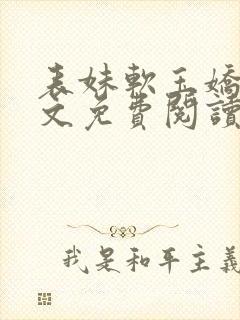 表妹軟玉嬌
文免費閱讀
我是和平主義